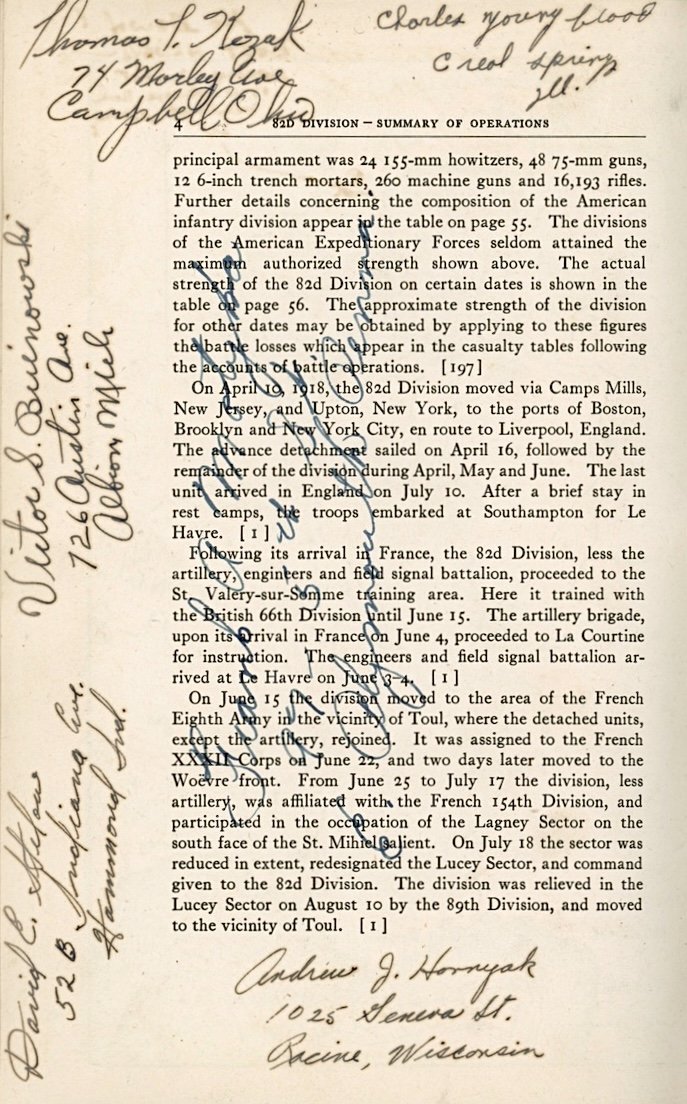 Thomas T. Kozak
74 Morley Ave
Campbell Ohio
Charles young blood
Creal spring
Ill.
4 82D DIVISION — SUMMARY OF OPERATIONS
principal armament was 24 155-mm howitzers, 48 75-mm guns,
12 6-inch trench mortars, 260 machine guns and 16,193 rifles.
Further details concerning the composition of the American
infantry division appear in the table on page 55. The divisions
of the American Expeditionary Forces seldom attained the
maximum authorized strength shown above. The actual
strength of the 82d Division on certain dates is shown in the
table on page 56. The approximate strength of the division
for other dates may be obtained by applying to these figures
the battle losses which appear in the casualty tables following
the accounts of battle operations. [197]
On April 10, 1918, the 82d Division moved via Camps Mills,
New Jersey, and Upton, New York, to the ports of Boston,
Brooklyn and New York City, en route to Liverpool, England.
The advance detachment sailed on April 16, followed by the
remainder of the division during April, May and June. The last
unit arrived in England on July 10. After a brief stay in
rest camps, the troops embarked at Southampton for Le
Havre. [1]
Following its arrival in France, the 82d Division, less the
artillery, engineers and field signal battalion, proceeded to the
St. Valery-sur-Somme training area. Here it trained with
the British 66th Division until June 15. The artillery brigade,
upon its arrival in France on June 4, proceeded to La Courtine
for instruction. The engineers and field signal battalion ar-
rived at Le Havre on June 3-4. [1]
On June 15 the division moved to the area of the French
Eighth Army in the vicinity of Toul, where the detached units,
except the artillery, rejoined. It was assigned to the French
XXXII Corps on June 22, and two days later moved to the
Woëvre front. From June 25 to July 17 the division, less
artillery, was affiliated with the French 154th Division, and
participated in the occupation of the Lagney Sector on the
south face of the St. Mihiel salient. On July 18 the sector was
reduced in extent, redesignated the Lucey Sector, and command
given to the 82d Division. The division was relieved in the
Lucey Sector on August 10 by the 89th Division, and moved
to the vicinity of Toul. [1]
Victor S. Buinowski
726 Austin Ave.
Albion Mich
David C. Stefan
52 B Indiana Ave.
Hammond Ind.
Frank
St
Andrew J. Hornyak
1025 Geneva St.
Racine, Wisconsin